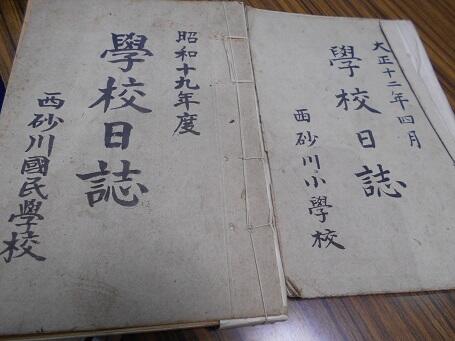 昭和十九年度
學校日誌
西砂川國民學校
大正十二年四月
學校日誌
西砂川小學校